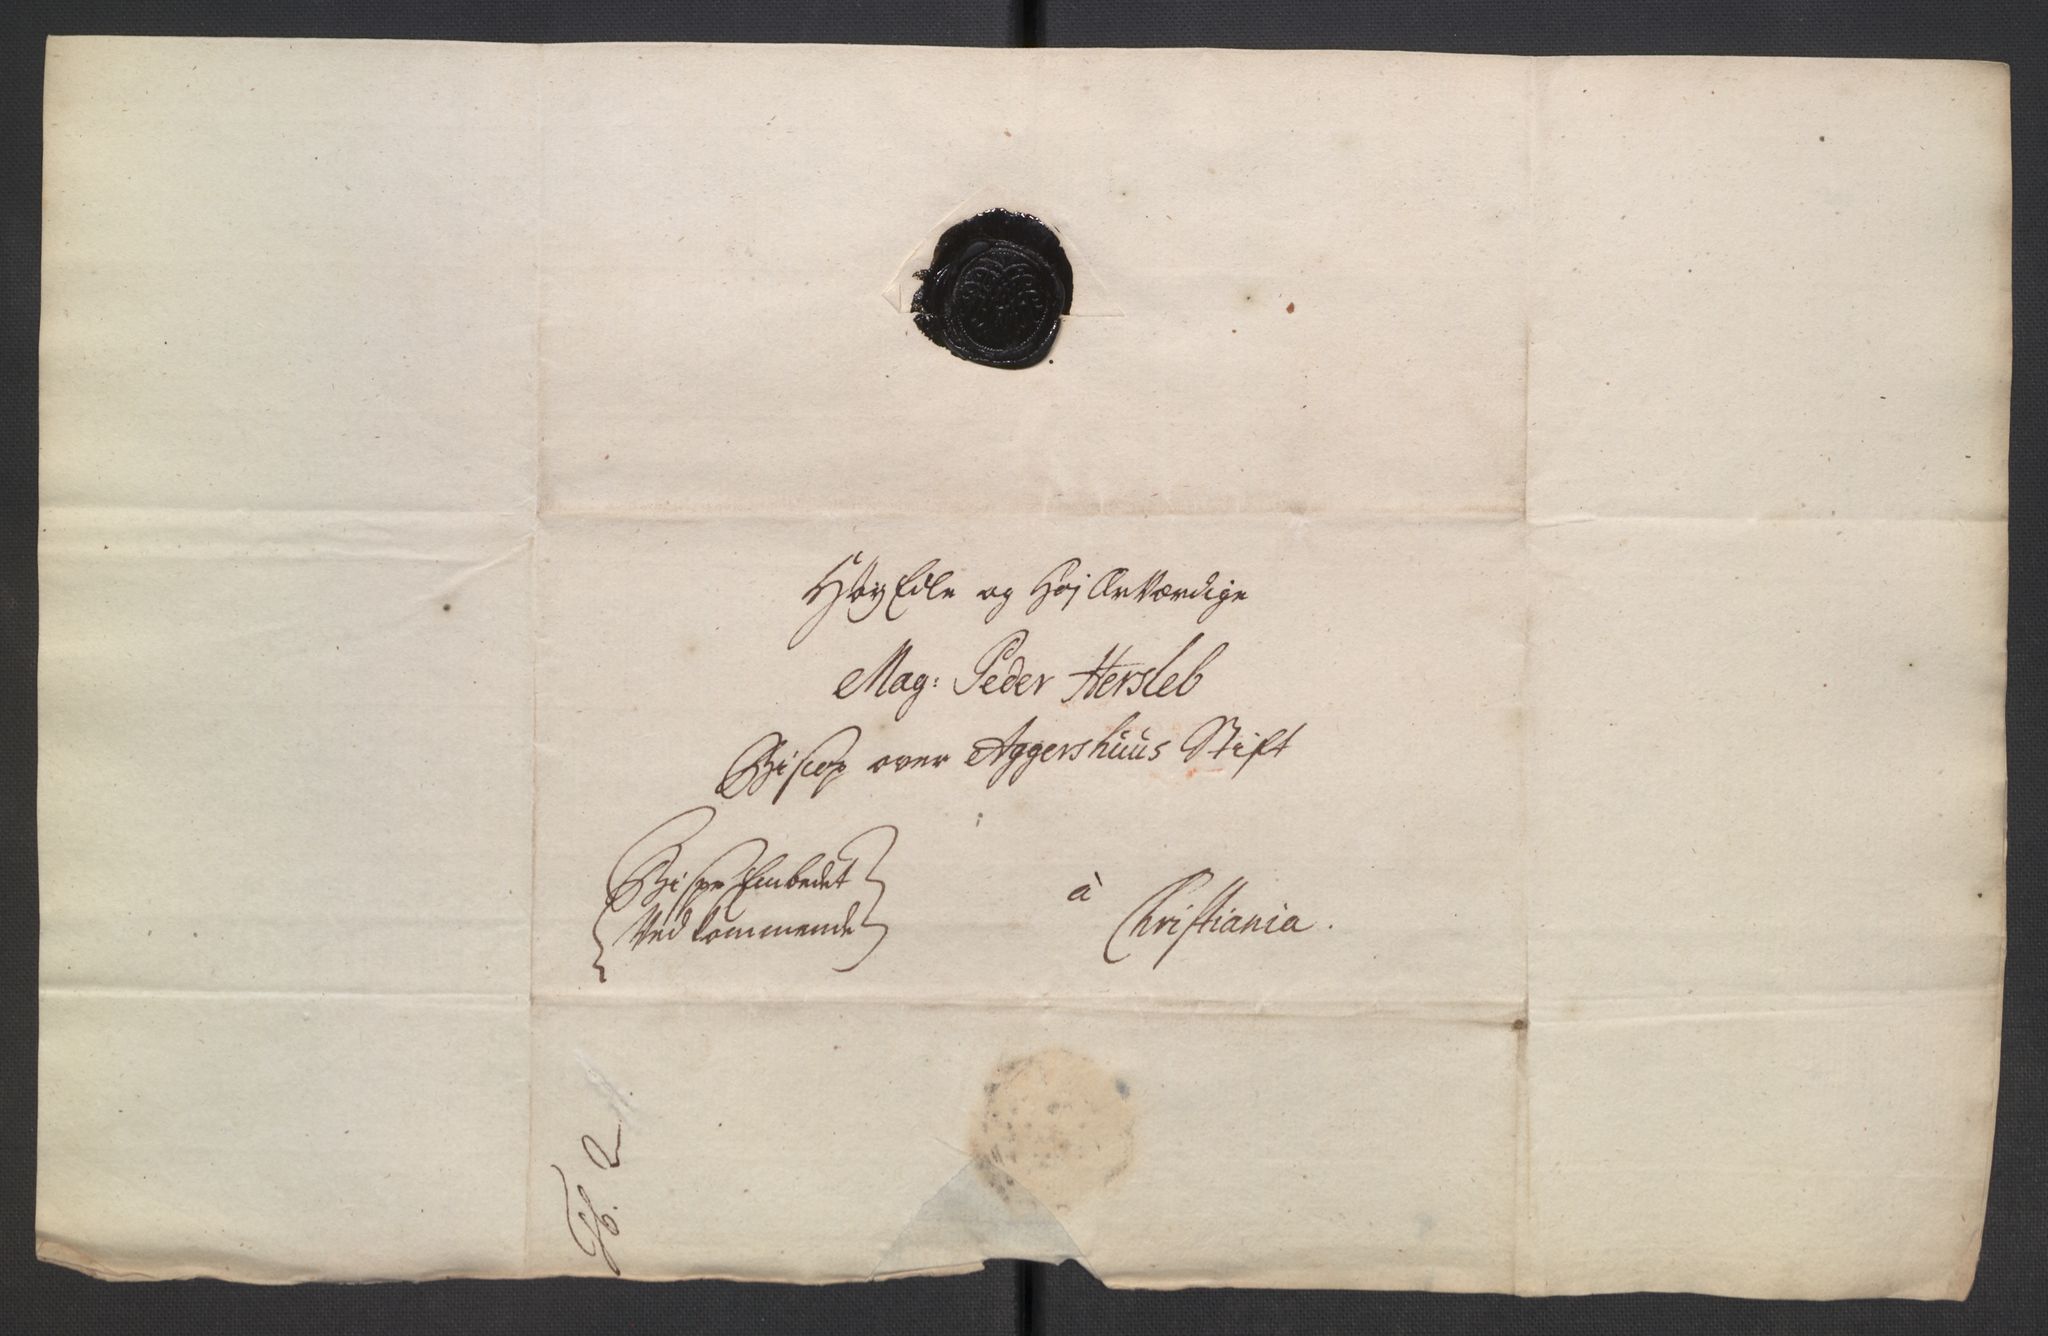 HøyEdle og HøjÆrværdige
Mag: Peder Hersleb
Biscop over Aggershuus Stift
Bispe Embedet
Vedkommende
à
Christiania.
2